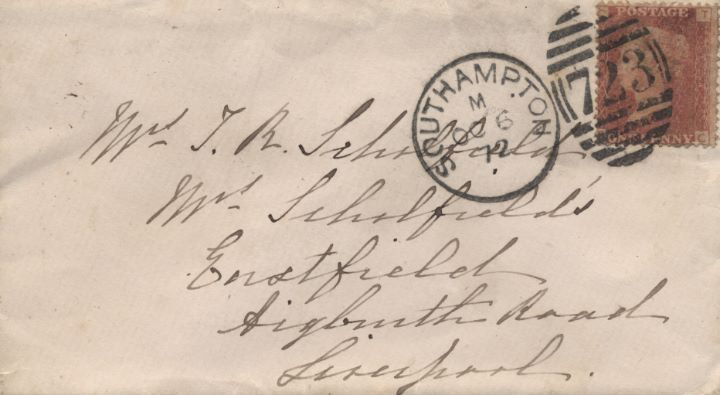 POSTAGE
T
723
ONE PENNY
G
SOUTHAMPTON
M
OC 6
72
Mrs T. R. Scholfield
Mrs Scholfield's
Eastfield
Aigburth Road
Liverpool.